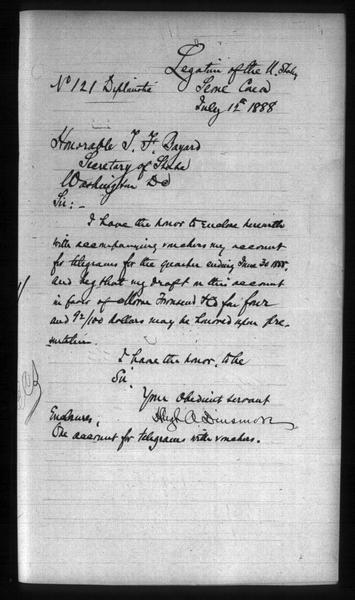 Legation of the U. States
No 121 Diplomatic Seoul Corea
July 12th 1888
Honorable T. F. Bayard
Secretary of State
Washington DC
Sir:-
I have the honor to enclose herewith
with accompanying vouchers my account
for telegrams for the quarter ending June 30 1888,
and beg that my draft on this account
in favor of Morse Townsend & Co for four
and 92/100 dollars may be honored upon pre-
sentation.
I have the honor, to be
Sir,
Your obedient servant
Hugh A Dinsmore
Enclosures,
One account for telegrams with vouchers.